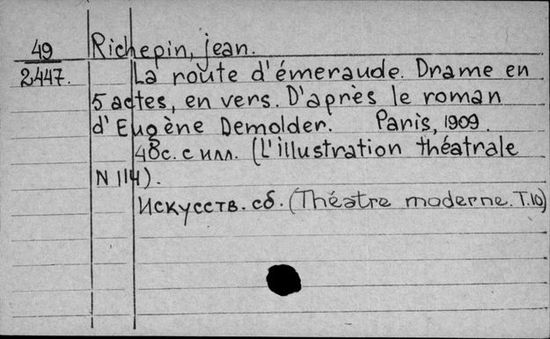 49 Richepin, jean.
2447. La route d'émeraude. Drame en
5 actes, en vers. D'après le roman
d'Eugène Demolder. Paris, 1909.
48с. с илл. (L'illustration théatrale
N 114).
Искусств. сб. (Théatre moderne. T.10)